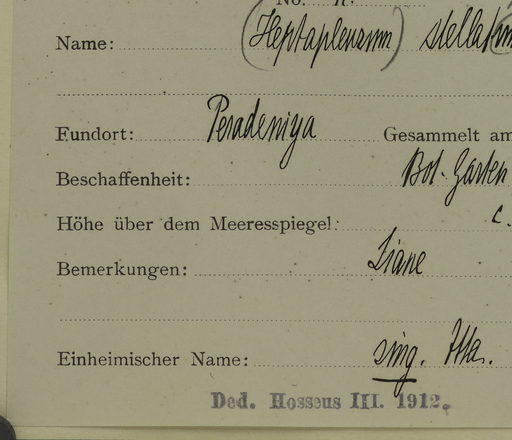 No.
Name: (Heptapleurum) stellatum
Fundort: Peradeniya Gesammelt am
Beschaffenheit: Bot. Garten
Höhe über dem Meeresspiegel: c.
Bemerkungen: Liane
Einheimischer Name: sing. Itta.
Ded. Hosseus III. 1912.